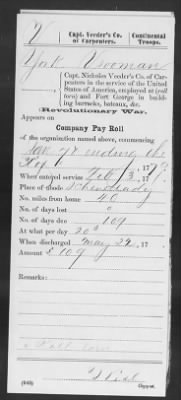 V | Capt. Veeder's Co. of Carpenters. | Continental Troops.
York Vrooman
Capt. Nicholas Veeder's Co. of Car-
penters in the service of the United
States of America, employed at (roll
torn) and Fort George in build-
ing barracks, bateaux, &c.
Revolutionary War.
Appears on
Company Pay Roll
of the organization named above, commencing
When entered service Feb 3, 177
Place of abode Schenectady
No. miles from home 40
No. of days lost 0
No. of days due 109
At what per day 20
When discharged May 22, 177
Amount £ 109
Remarks:
Copyist.